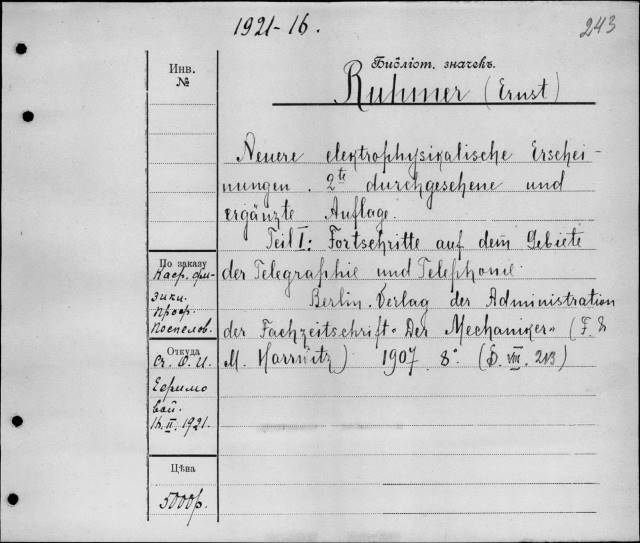 1921-16.
243
Инв.
№
Библіот. значекъ.
Ruhmer (Ernst)
Neuere elektrophysikalische Erschei-
nungen. 2te durchgesehene und
ergänzte Auflage.
Teil I: Fortschritte auf dem Gebiete
der Telegraphie und Telephonie.
Berlin. Verlag der Administration
der Fachzeitschrift "Der Mechaniker" (F. &
M. Harrwitz) 1907 8° (D. VIII. 213)
По заказу
Каѳр. фи-
зики.
Проф.
Поспелов.
Откуда
О. И.
Ефримо
вой.
16.II.1921.
Цѣна
5000р.